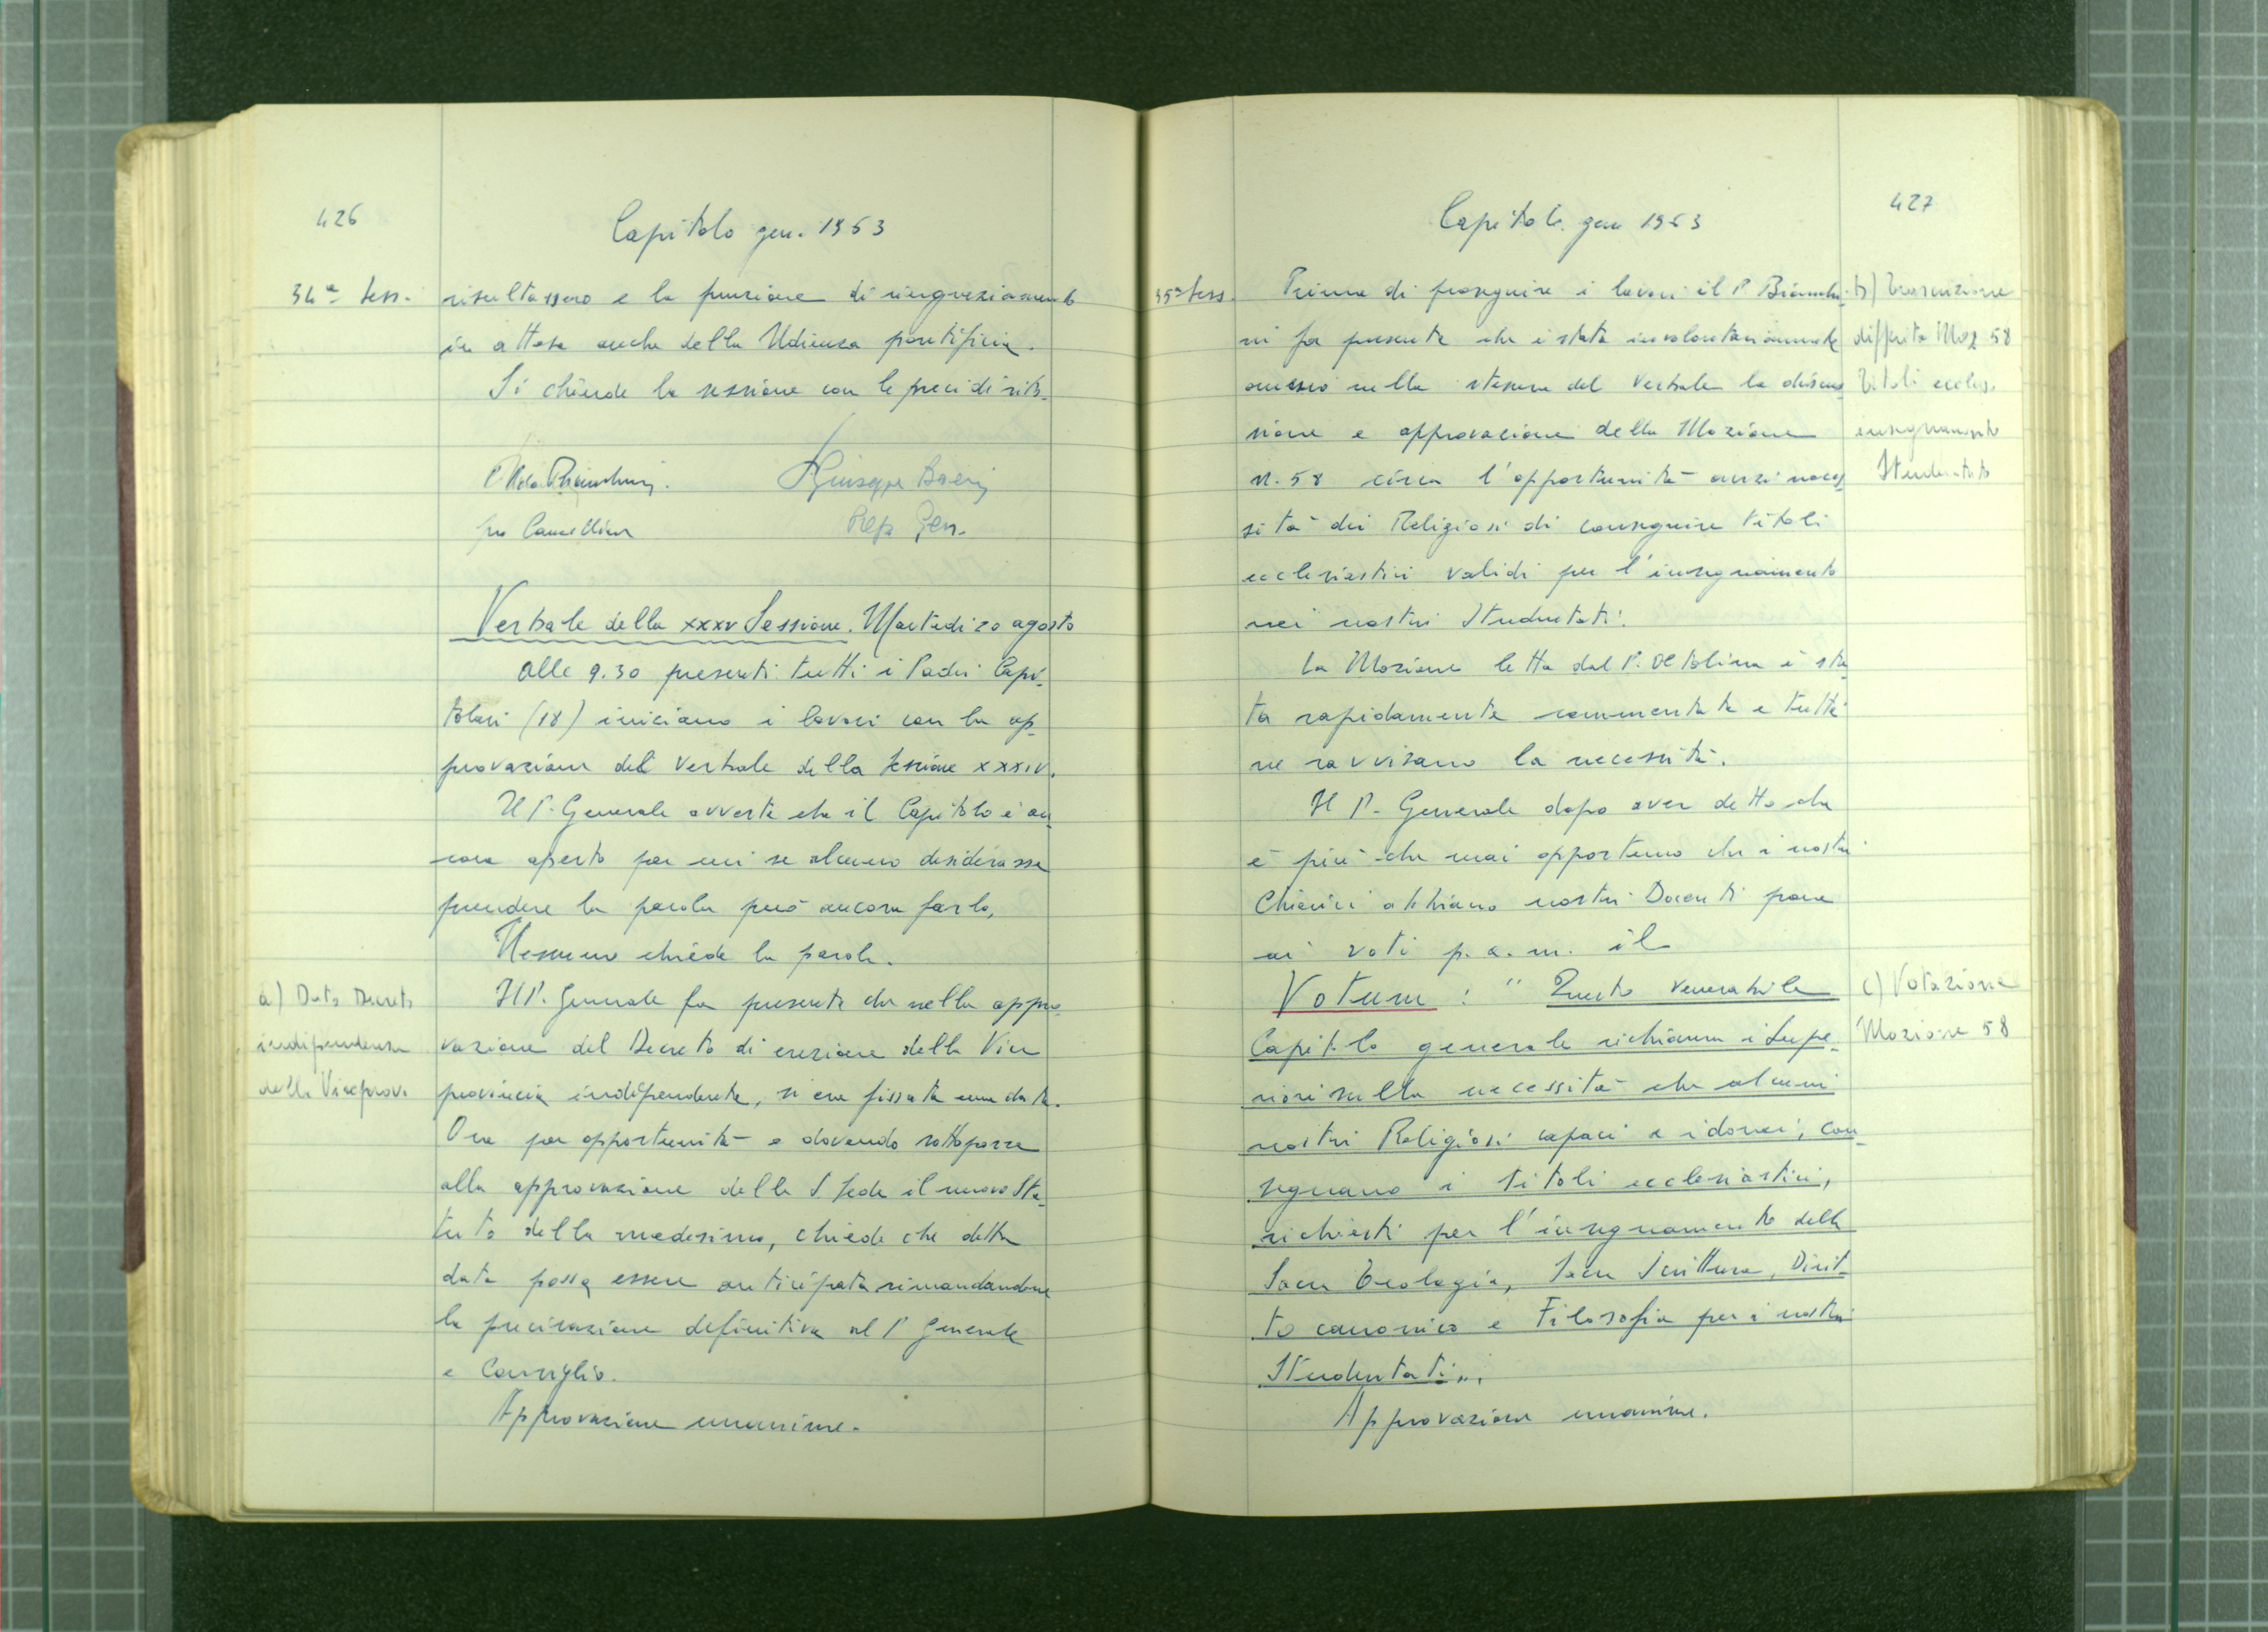 426
Capitolo gen. 1963
34ª Sess.
risultassero e la funzione di ringraziamento
in attesa anche della Udienza pontificia.
Si chiude la sessione con le preci di rito.
P. Giuseppe Boeris
pro Cancelliere
Prep. Gen.
Verbale della XXXV Sessione. Martedì 20 agosto
Alle 9.30 presenti tutti i Padri Capi-
tolari (18) iniziano i lavori con la ap-
provazione del Verbale della Sessione XXXIV.
Il P. Generale avverte che il Capitolo è an-
cora aperto per cui se alcuno desiderasse
prendere la parola può ancora farlo.
Nessuno chiede la parola.
a) Data Decreto
indipendenza
della Viceprov.
Il P. Generale fa presente che nella appro-
vazione del Decreto di erezione della Vice
provincia indipendente, si era fissata una data.
Ora per opportunità e dovendo sottoporre
alla approvazione della S. Sede il nuovo Sta-
tuto della medesima, chiede che detta
data possa essere anticipata rimandandone
la precisazione definitiva al P. Generale
e Consiglio.
Approvazione unanime.
427
Capitolo gen 1963
35ª Sess.
Prima di proseguire i lavori il P. Bianchi-
ni fa presente che è stata involontariamente
omessa nella stesura del Verbale la discus-
sione e approvazione della Mozione
n. 58 circa l'opportunità anzi neces-
sità dei Religiosi di conseguire titoli
ecclesiastici validi per l'insegnamento
nei nostri Studentati.
b) Trascrizione
differita Moz 58
Titoli eccles.
insegnamento
Studentato
La Mozione letta dal P. Oltolina è sta-
ta rapidamente commentata e tutti
ne ravvisano la necessità.
Il P. Generale dopo aver detto che
è più che mai opportuno che i nostri
Chierici abbiano nostri Docenti pone
ai voti p.a.m. il
Votum : " Questo Venerabile
Capitolo generale richiama i Supe-
riori sulla necessità che alcuni
nostri Religiosi capaci e idonei, con-
seguano i titoli ecclesiastici,
richiesti per l'insegnamento della
Sacra Teologia, Sacra Scrittura, Dirit-
to canonico e Filosofia per i nostri
Studentati".
c) Votazione
Mozione 58
Approvazione unanime.